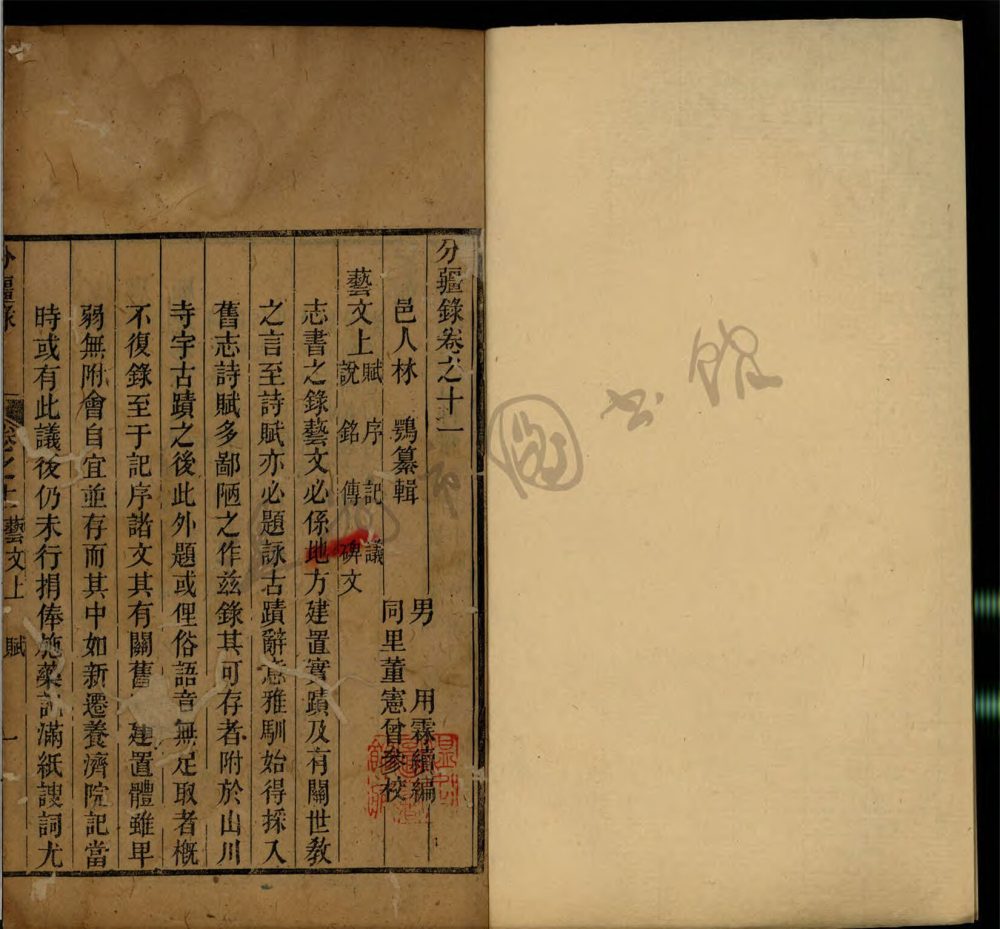 分疆錄卷之十一
邑人林鶚纂輯
男用霖續編
同里董憲曾參校
藝文上 賦 序 記 議
說 銘 傳 碑文
志書之錄藝文必係地方建置實蹟及有關世教
之言至詩賦亦必題詠古蹟辭意雅馴始得採入
舊志詩賦多鄙陋之作茲錄其可存者附於山川
寺宇古蹟之後此外題或俚俗語音無足取者概
不復錄至于記序諸文其有關舊建置體雖卑
弱無附會自宜並存而其中如新遷養濟院記當
時或有此議後仍未行捐俸施藥記滿紙諛詞尤
分疆錄 卷之十一 藝文上 賦 一
圖書館